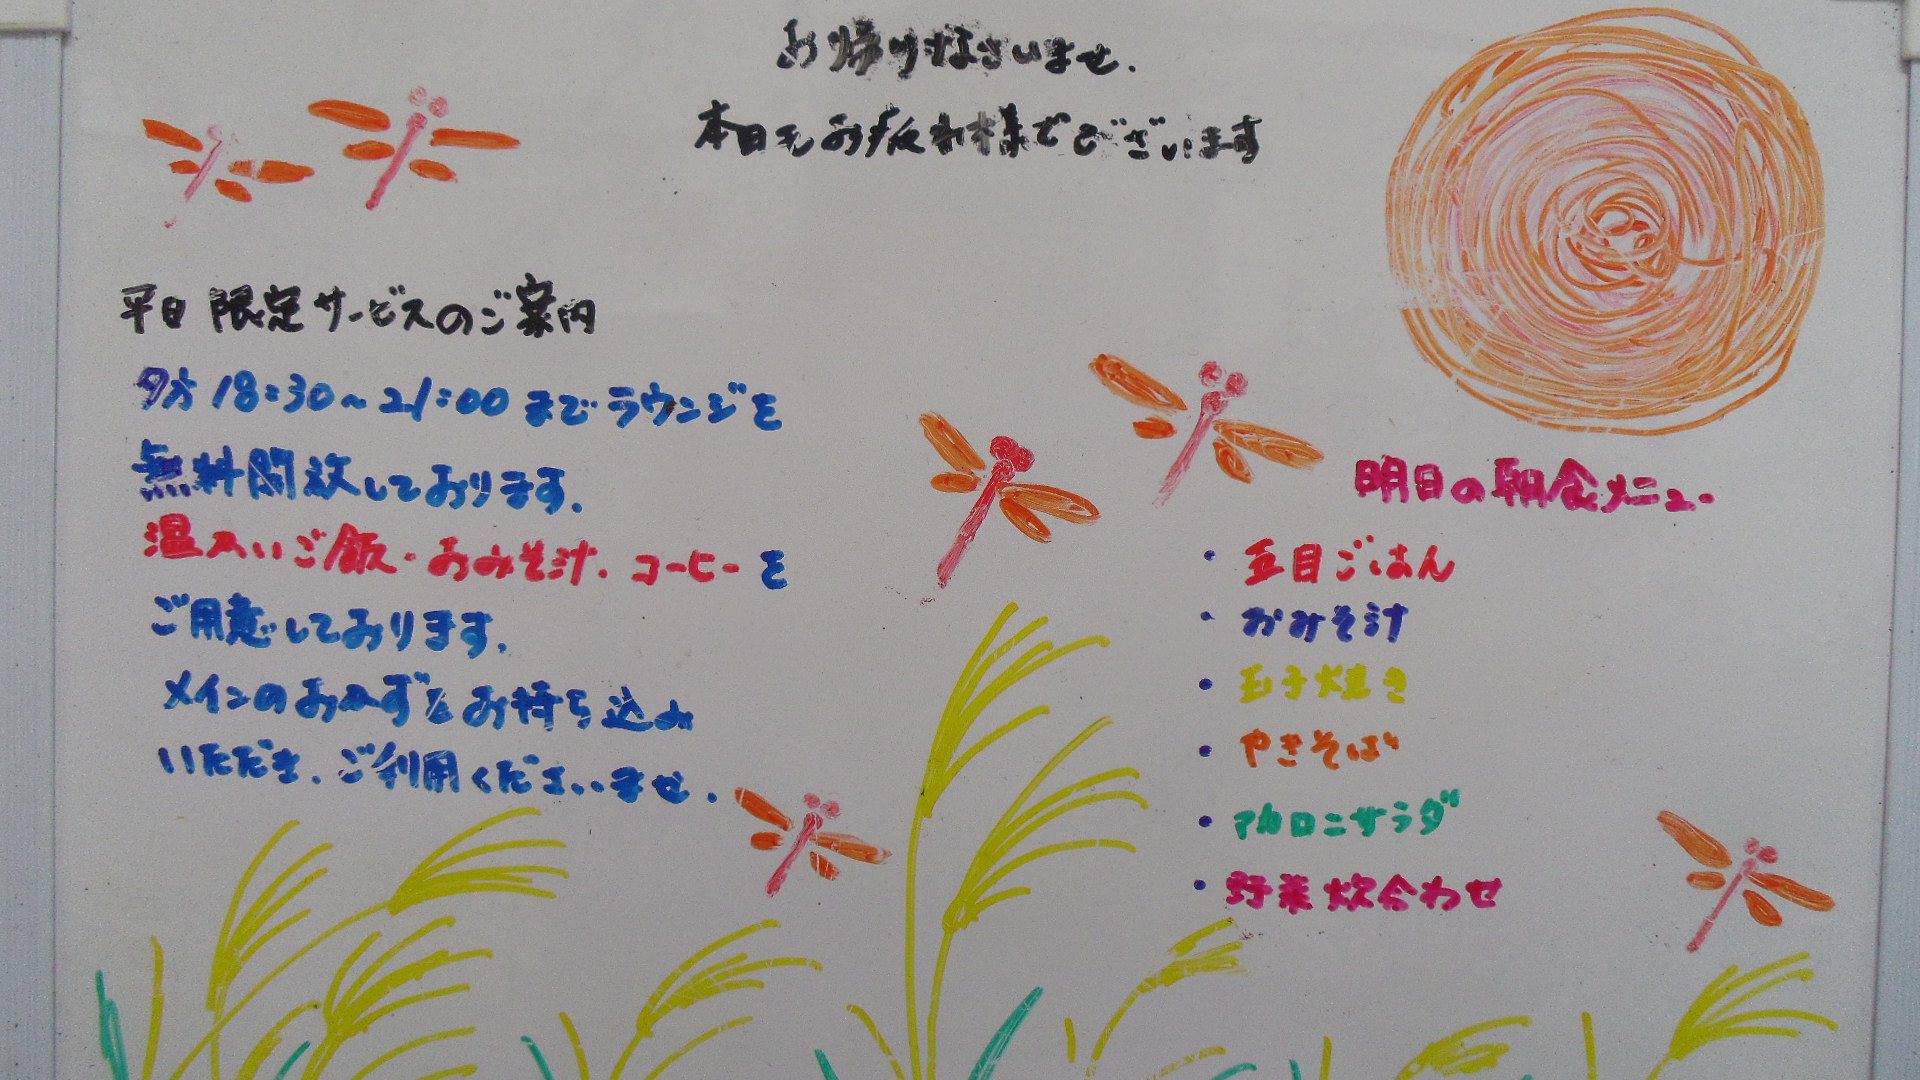 お帰りなさいませ.
本日もお疲れ様でございます
平日 限定サービスのご案内
夕方 18:30～21:00 までラウンジを
無料開放しております.
温かいご飯・おみそ汁. コーヒーを
ご用意しております.
メインのおかずをお持ち込み
いただき. ご利用くださいませ.
明日の朝食メニュー
・五目ごはん
・おみそ汁
・玉子焼き
・やきそば
・マカロニサラダ
・野菜炊合わせ